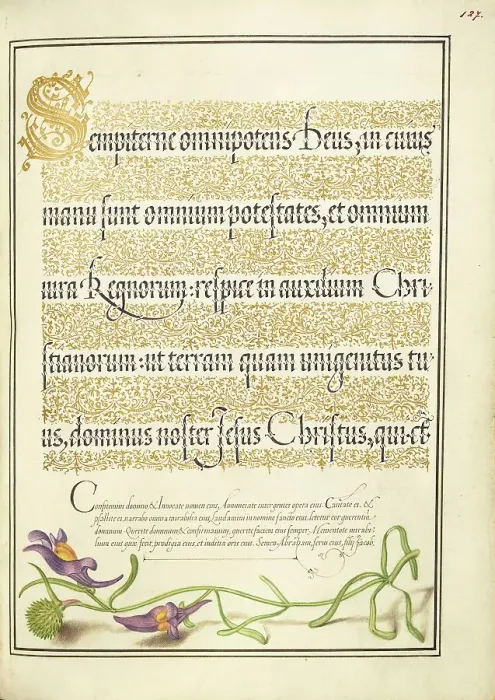 127.
Sempiterne omnipotens Deus, in cuius
manu sunt omnium potestates, et omnium
iura Regnorum: respice in auxilium Chri-
stianorum: ut terram quam unigenitus tu-
us, dominus noster Jesus Christus, qui est
Confitemini domino, & invocate nomen eius, Annunciate inter gentes opera eius. Cantate ei, &
psallite ei, narrate omnia mirabilia eius, laudamini in nomine sancto eius, letetur cor querentiu
dominum. Querite dominum, & confirmamini, querite faciem eius semper. Mementote mirabi-
lium eius quae fecit, prodigia eius, et iudicia oris eius. Semen Abraham, servi eius, filij Jacob,